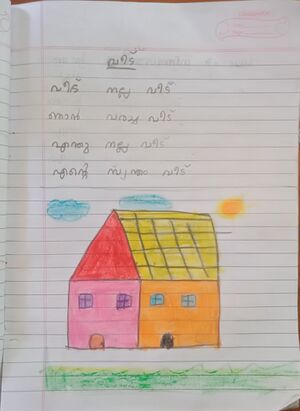 വീട്
വീട് നല്ല വീട്
ഞാൻ വരച്ച വീട്
എന്തു നല്ല വീട്
എന്റെ സ്വന്തം വീട്